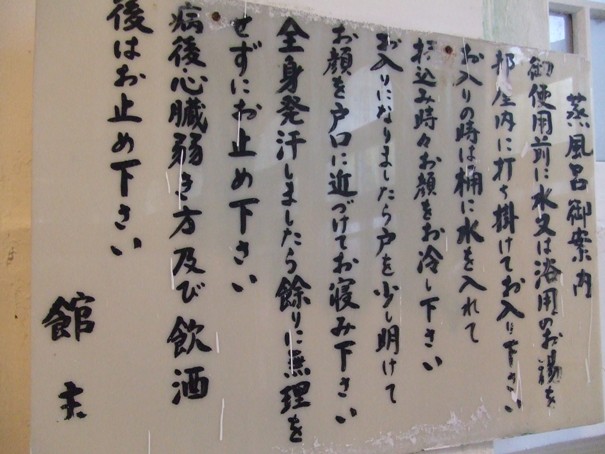 蒸風呂御案内
御使用前に水又は浴用のお湯を
部屋内に打ち掛けてお入り下さい
お入りの時は桶に水を入れて
持込み時々お顔をお冷し下さい
お入りになりましたら戸を少し明けて
お顔を戸口に近づけてお寝み下さい
全身発汗しましたら餘りに無理を
せずにお止め下さい
病後心臓弱き方及び飲酒
後はお止め下さい
館主